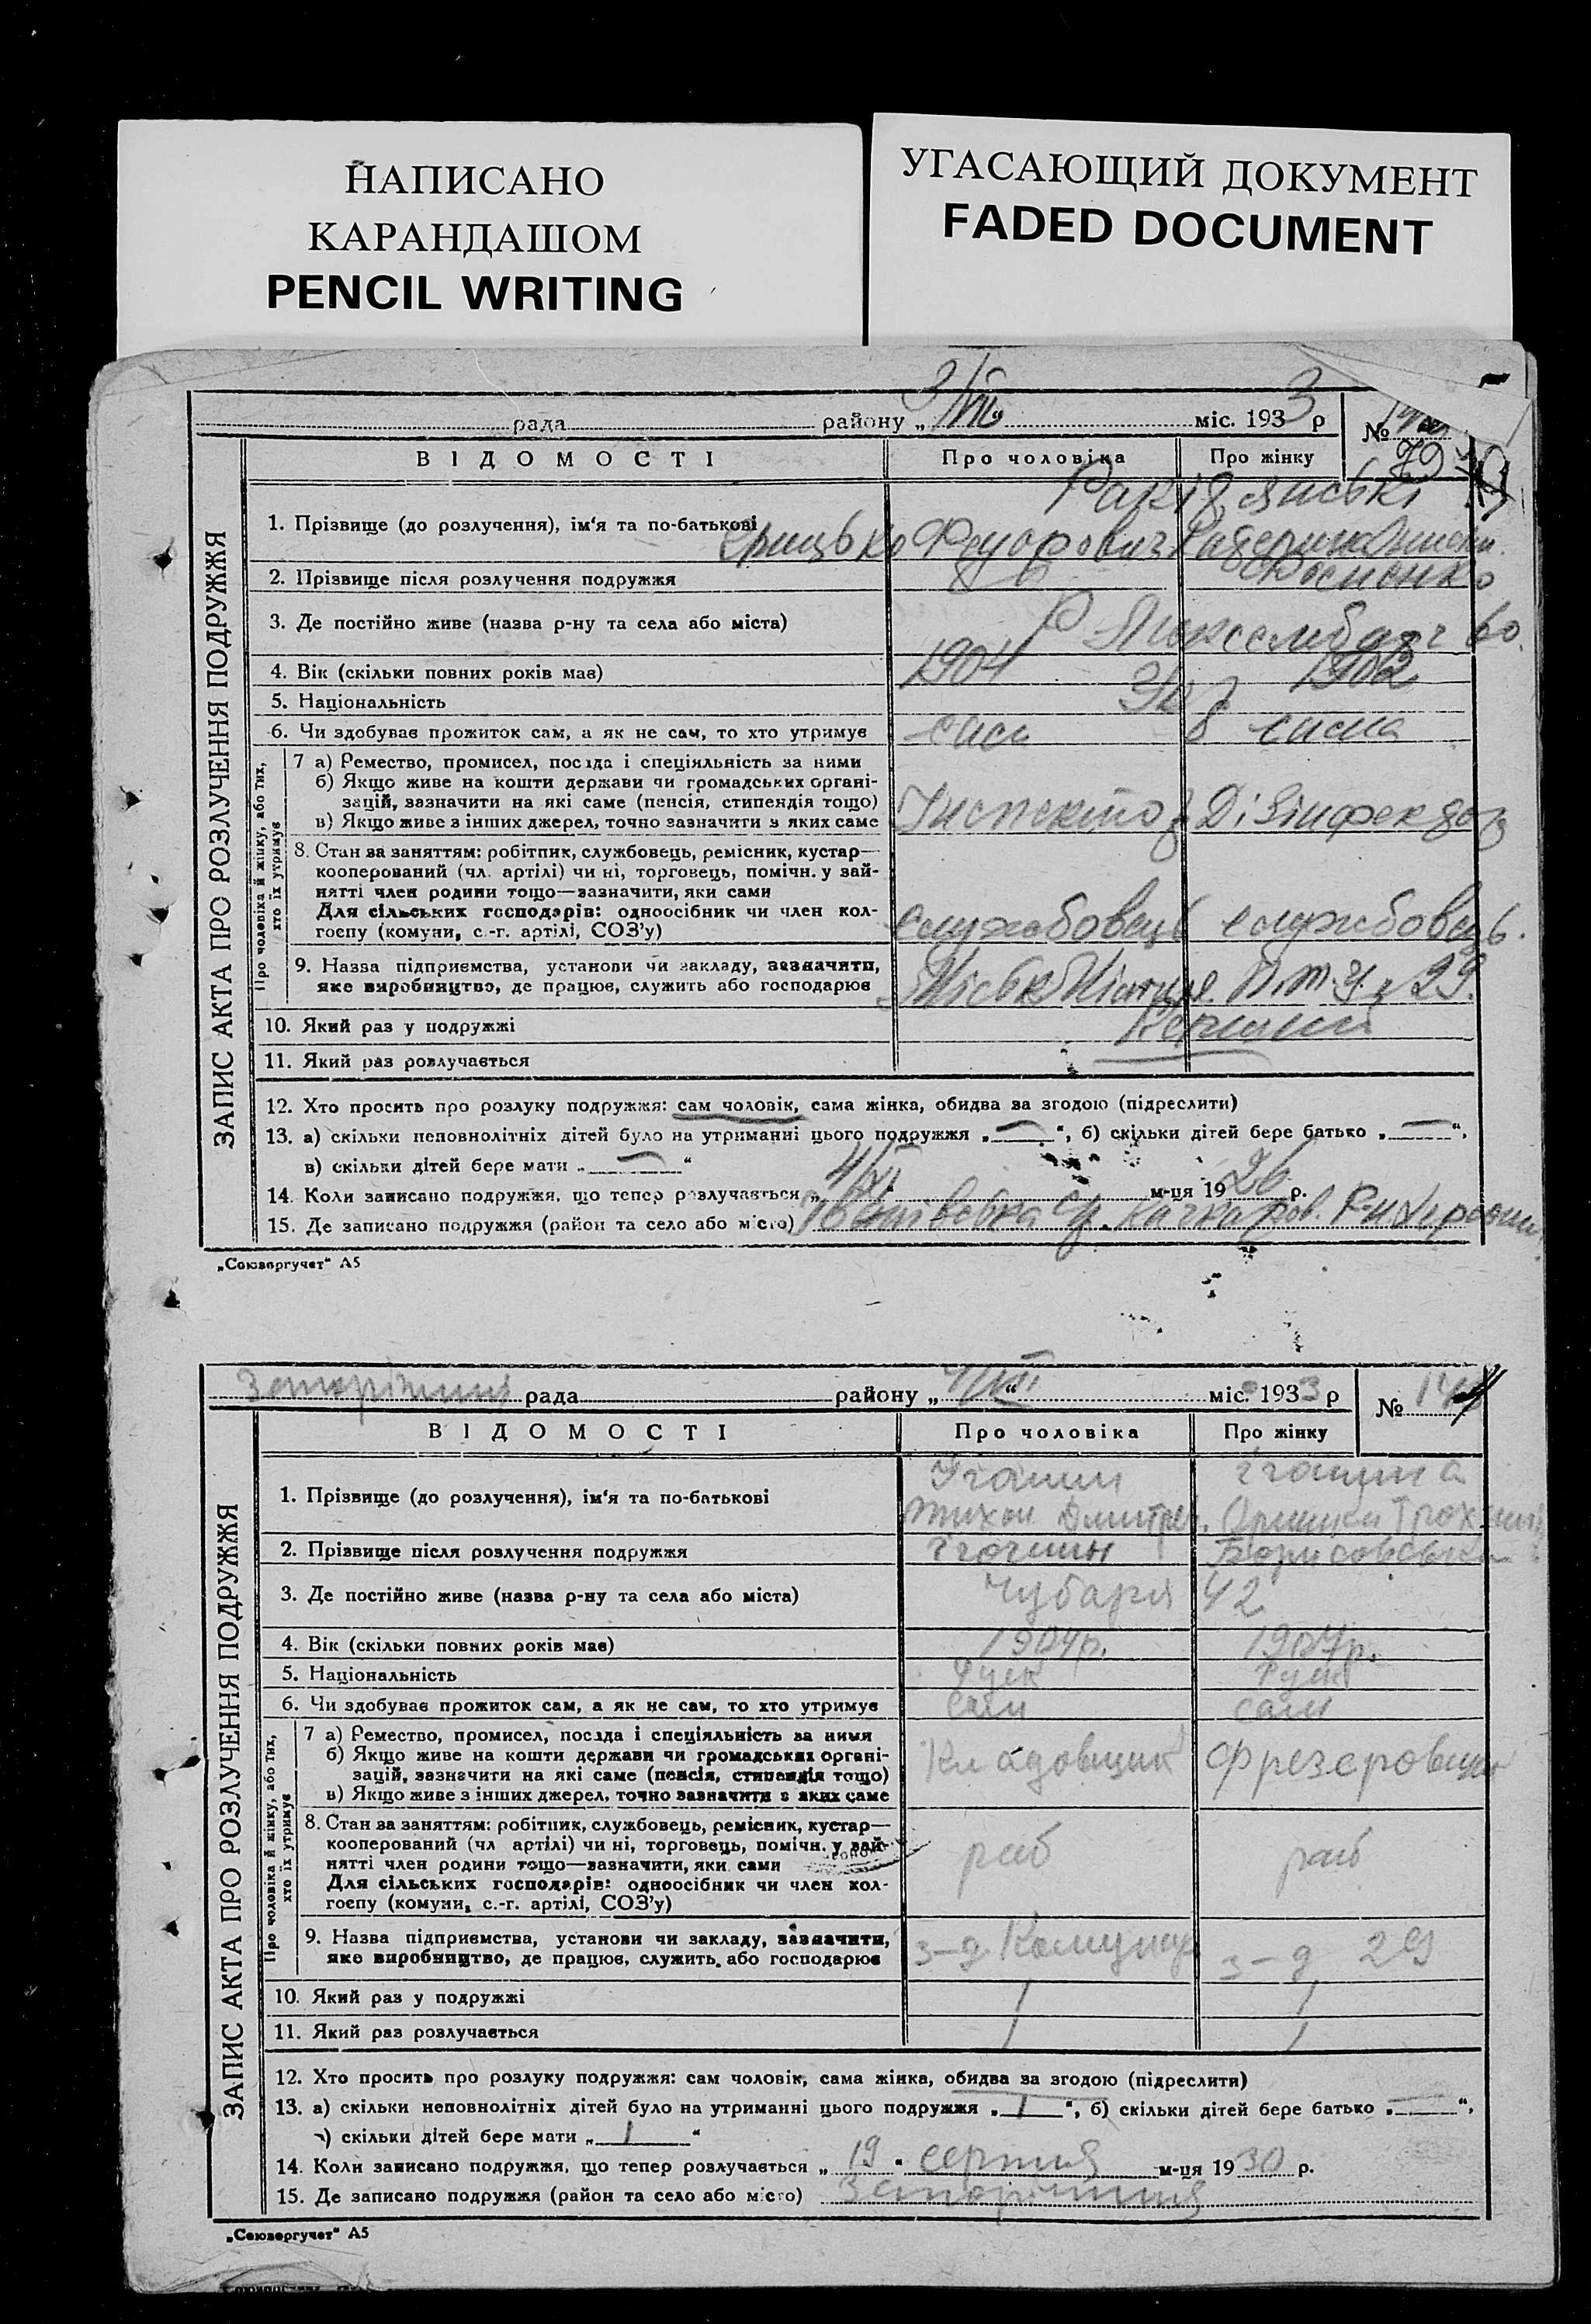 НАПИСАНО
КАРАНДАШОМ
PENCIL WRITING
УГАСАЮЩИЙ ДОКУМЕНТ
FADED DOCUMENT
ЗАПИС АКТА ПРО РОЗЛУЧЕННЯ ПОДРУЖЖЯ
рада району „3/VIII“ міс. 1933 р №
ВІДОМОСТІ Про чоловіка Про жінку 79
1. Прізвище (до розлучення), ім'я та по-батькові
Грицько Федорович Катерина
2. Прізвище після розлучення подружжя
3. Де постійно живе (назва р-ну та села або міста) Р. Люксембург 60.
4. Вік (скільки повних років має) 1904 1902
5. Національність Укр
6. Чи здобуває прожиток сам, а як не сам, то хто утримує сам сама
Про чоловіка й жінку, або тих, хто їх утримує
7 а) Ремество, промисел, посада і спеціяльність за ними
б) Якщо живе на кошти держави чи громадських органі-
зацій, зазначити на які саме (пенсія, стипендія тощо)
в) Якщо живе з інших джерел, точно зазначити з яких саме Інспектор Дізінфектор
8. Стан за заняттям: робітник, службовець, ремісник, кустар—
кооперований (чл. артілі) чи ні, торговець, помічн. у зай-
нятті член родини тощо—зазначити, яки сами
Для сільських господарів: одноосібник чи член кол-
госпу (комуни, с.-г. артілі, СОЗ'у) службовець службовець.
9. Назва підприємства, установи чи закладу, зазначити,
яке виробництво, де працює, служить або господарює 29.
10. Який раз у подружжі Перший
11. Який раз розлучається
12. Хто просить про розлуку подружжя: сам чоловік, сама жінка, обидва за згодою (підреслити)
13. а) скільки неповнолітніх дітей було на утриманні цього подружжя „—“, б) скільки дітей бере батько „—“,
в) скільки дітей бере мати „—“
14. Коли записано подружжя, що тепер розлучається „4/XI“ м-ця 1926 р.
15. Де записано подружжя (район та село або місто) Качкаров. Р-н
„Союзоргучет“ А5
ЗАПИС АКТА ПРО РОЗЛУЧЕННЯ ПОДРУЖЖЯ
рада району „ “ міс. 1933 р №
ВІДОМОСТІ Про чоловіка Про жінку
1. Прізвище (до розлучення), ім'я та по-батькові
Тихон Дмитров.
2. Прізвище після розлучення подружжя Борисовська
3. Де постійно живе (назва р-ну та села або міста) Чубаря 42
4. Вік (скільки повних років має) 1904р. 1904р.
5. Національність Руск Руск
6. Чи здобуває прожиток сам, а як не сам, то хто утримує сам сам
Про чоловіка й жінку, або тих, хто їх утримує
7 а) Ремество, промисел, посада і спеціяльність за ними
б) Якщо живе на кошти держави чи громадських органі-
зацій, зазначити на які саме (пенсія, стипендія тощо)
в) Якщо живе з інших джерел, точно зазначити з яких саме Кладовщик Фрезеровщик
8. Стан за заняттям: робітник, службовець, ремісник, кустар—
кооперований (чл артілі) чи ні, торговець, помічн. у зай-
нятті член родини тощо—зазначити, яки сами
Для сільських господарів: одноосібник чи член кол-
госпу (комуни, с.-г. артілі, СОЗ'у) раб раб
9. Назва підприємства, установи чи закладу, зазначити,
яке виробництво, де працює, служить або господарює з-д Комунар з-д 29
10. Який раз у подружжі 1 1
11. Який раз розлучається 1 1
12. Хто просить про розлуку подружжя: сам чоловік, сама жінка, обидва за згодою (підреслити)
13. а) скільки неповнолітніх дітей було на утриманні цього подружжя „1“, б) скільки дітей бере батько „—“,
в) скільки дітей бере мати „1“
14. Коли записано подружжя, що тепер розлучається „19“ серпня м-ця 1930 р.
15. Де записано подружжя (район та село або місто) Запоріжжя
„Союзоргучет“ А5